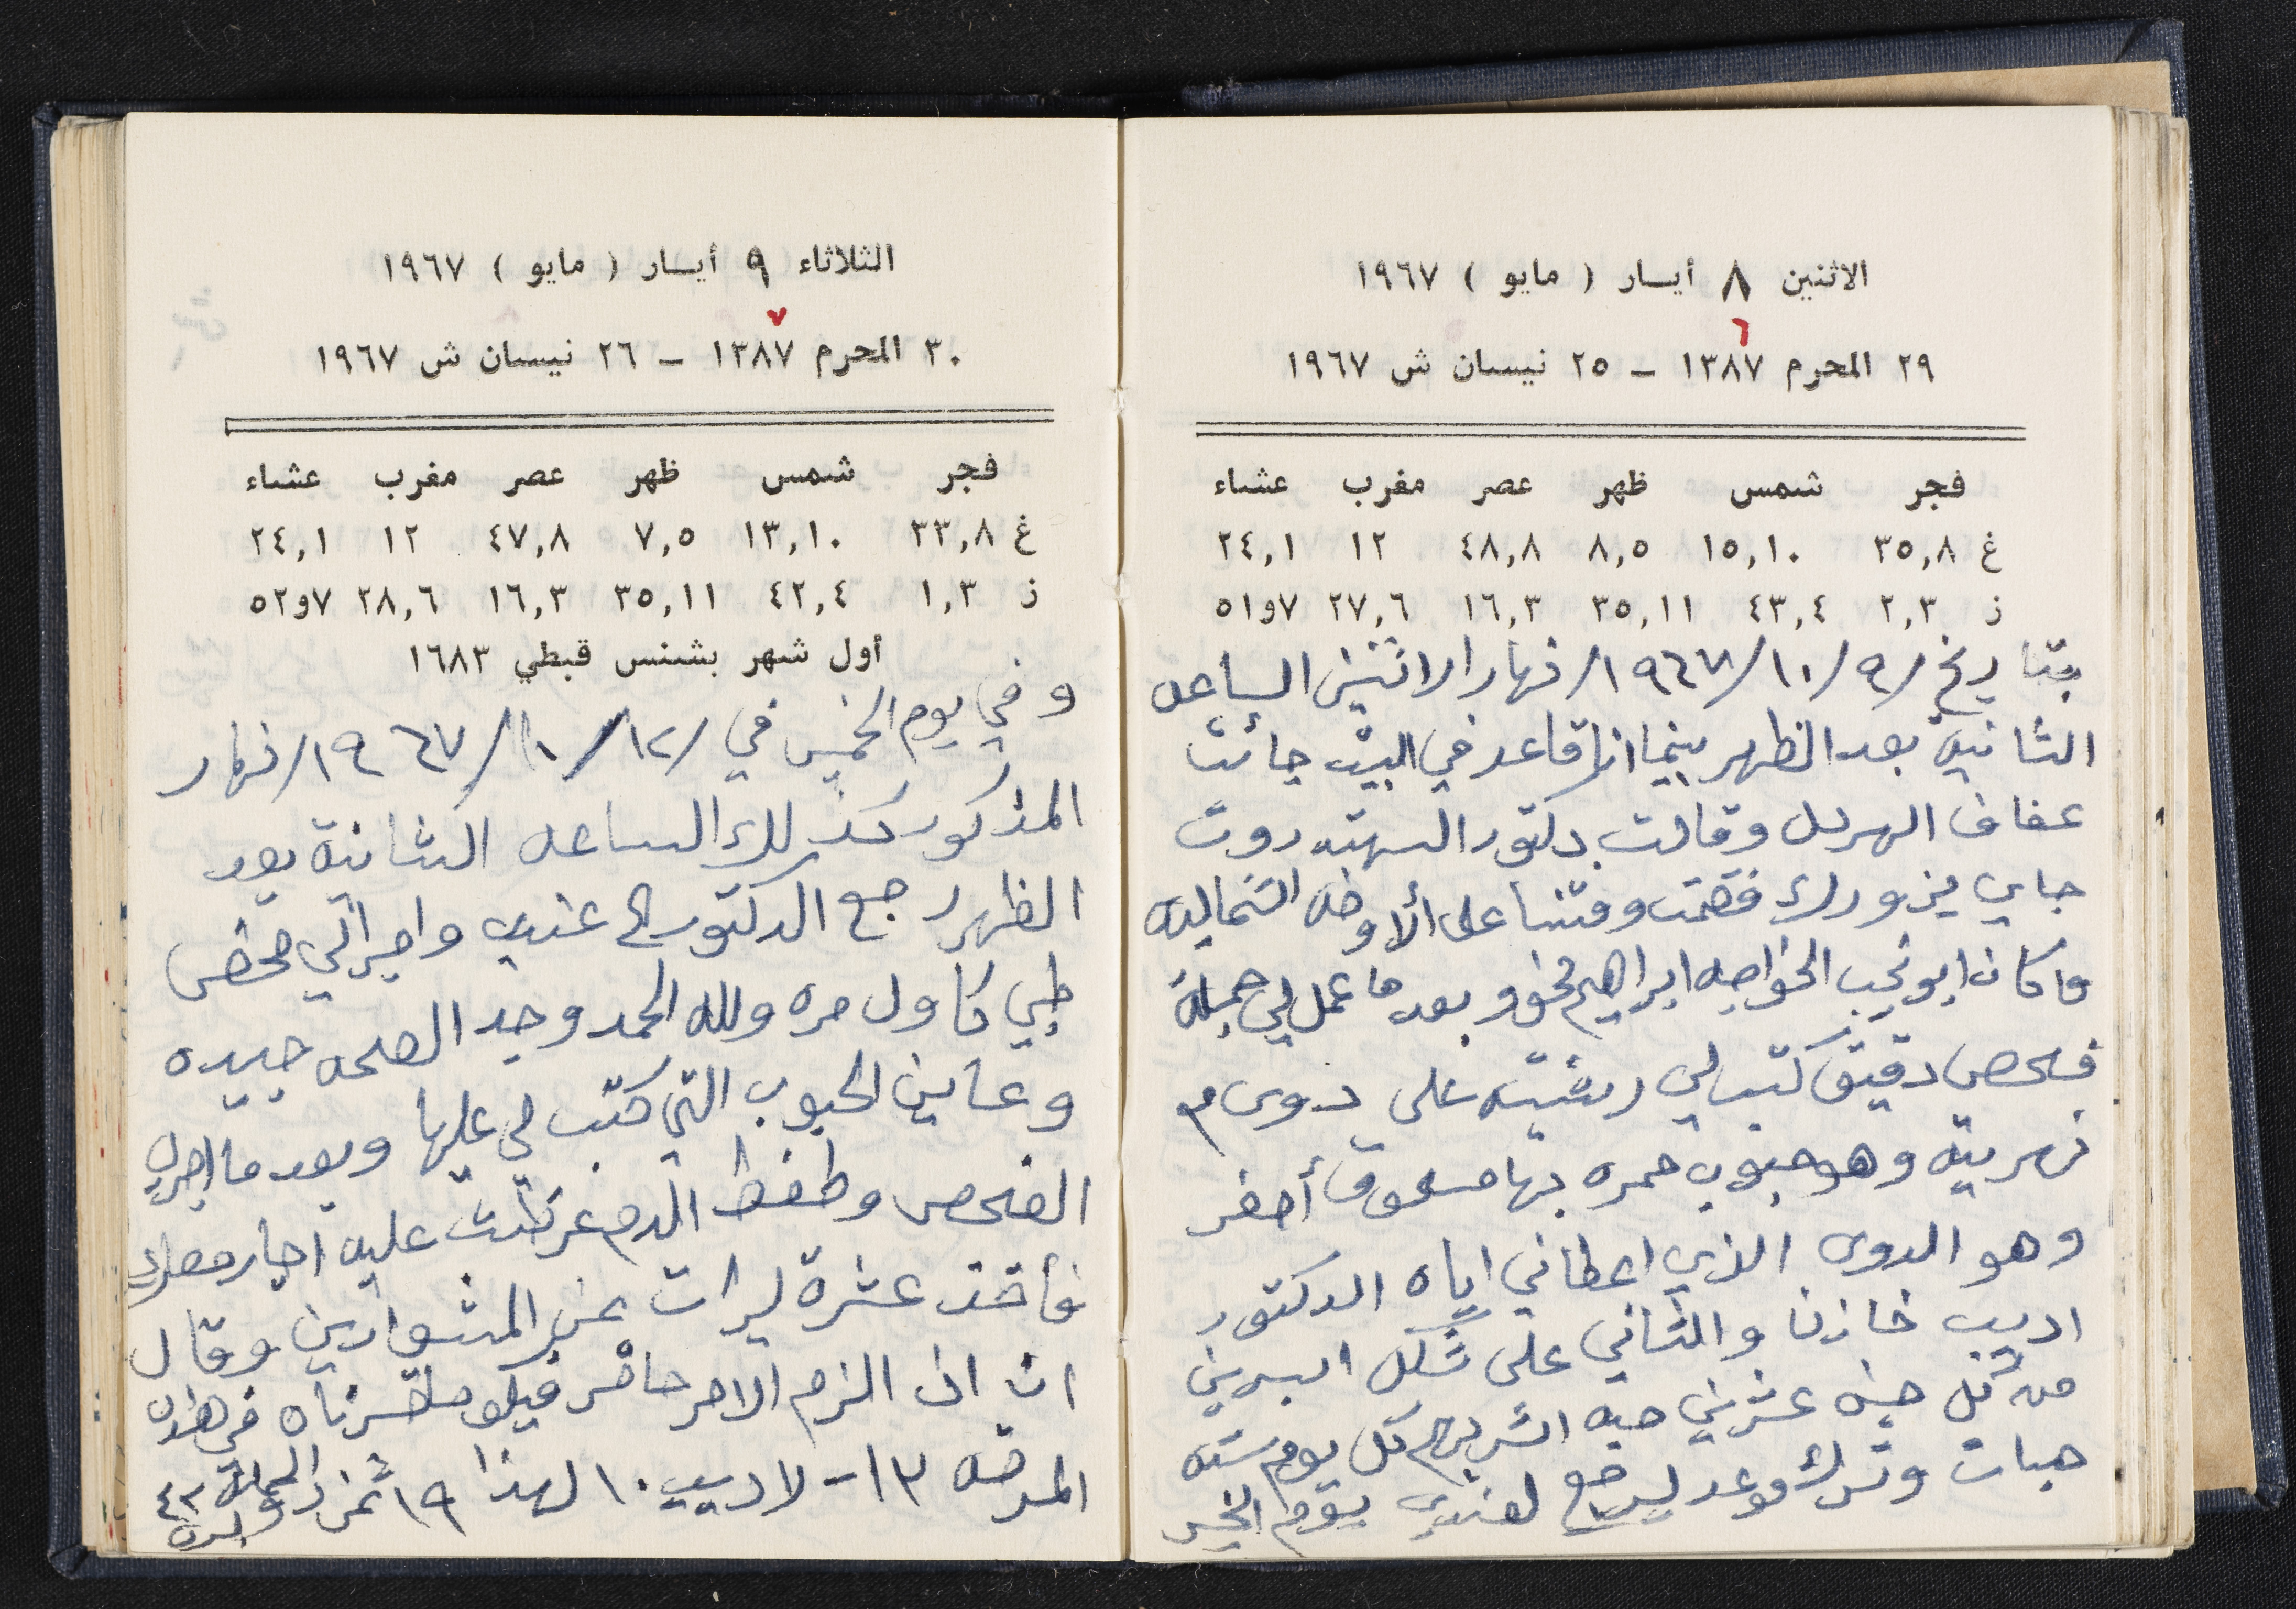 الاثنين ٨ أيسار ( مايو ) ١٩٦٧
٦
٢٩ المحرم ١٣٨٧ – ٢٥ نيسان ش ١٩٦٧
فجر شمس ظهر عصر مغرب عشاء
غ ٣٥,٨ ١٥,١٠ ٨,٥ ٤٨,٨ ١٢ ٢٤,١
ز ٢,٣ ٤٣,٤ ٣٥,١١ ١٦,٣ ٢٧,٦ ٧و٥١
بتاريخ /٩/١٠/١٩٦٧/ نهار الاثنين الساعه
الثانية بعد الظهر بينما انا قاعد في البيت جائت
عفاف الهربل وقالت دكتور السهته روت
جاي يزورك فقمت وفتنا على الأوضه الشماليه
وكان ابو نجيب الخواجه ابراهيم نخو وبعد ما عمل لي جملة
فحص دقيق كتب لي رشته على دوى م
نهريه وهو حبوب حمره بها مسحوق أصفر
وهو الدوى الذي اعطاني اياه الدكتور
اديب خازن والثاني على شكل اسبرين
من كل جنس عشرين حبه اشربهم كل يوم سته
حبات وترك موعد ليرجع لعندي يوم الخميس
الثلاثاء ٩ أيسار ( مايو ) ١٩٦٧
٧
٣٠ المحرم ١٣٨٧ – ٢٦ نيسان ش ١٩٦٧
فجر شمس ظهر عصر مغرب عشاء
غ ٣٣,٨ ١٣,١٠ ٧,٥ ٤٧,٨ ١٢ ٢٤,١
ز ١,٣ ٤٢,٤ ٣٥,١١ ١٦,٣ ٢٨,٦ ٧و٥٢
أول شهر بشنس قبطي ١٦٨٣
وفي يوم الخميس في /١٢/١٠/١٩٦٧/ نهار
المذكور كذلك الساعه الثانية بعد
الظهر رجع الدكتور الى عندي واجرالي فحص
طبي كاول مره ولله الحمد وجد الصحه جيده
وعاين الحبوب التي كتب لي عليها وبعد ما اجرى
الفحص وظغط الدم عرظت عليه اجار
فأخذ عشرة ليرات عن المشوارين وقال
ان اذا الزم الامر حاضر فيكو في هذه
المرضه ١٣ - لاديب ١٠ لهذا ١٩ ثمن الجملة ٤٢
ليره